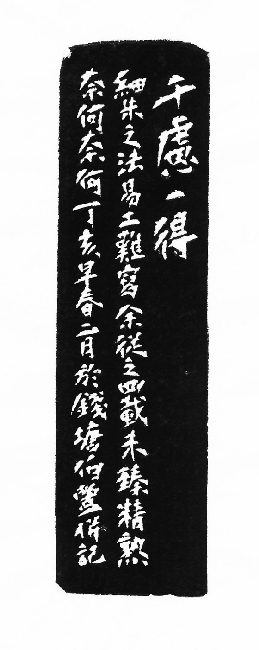 千慮一得
細朱之法易工難寫余從之四載未臻精熟
奈何奈何丁亥早春二月於錢塘伯瑩勝記